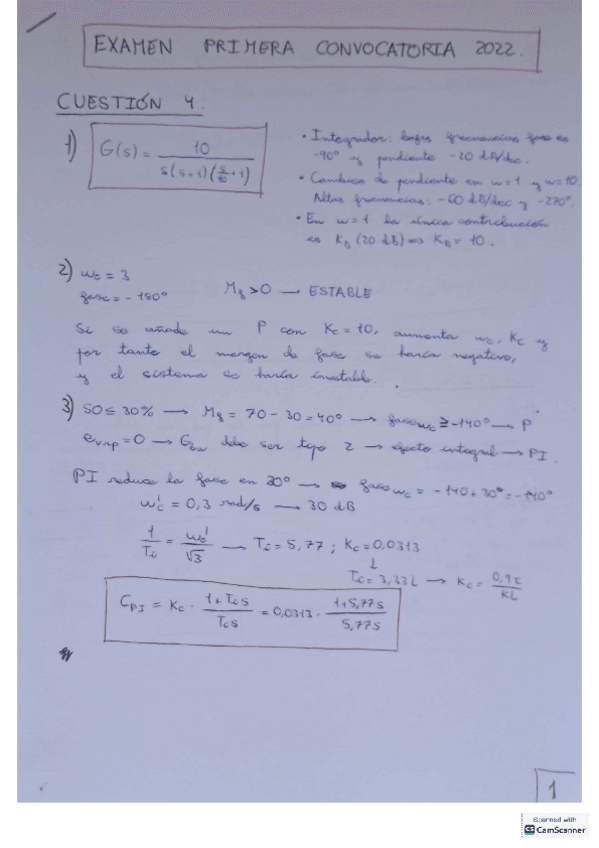 EXAMEN PRIMERA CONVOCATORIA 2022.
CUESTIÓN 4.
1) G(s) = 10 / s(s+1)(s/10+1)
• Integrador: bajas frecuencias fase es
-90° y pendiente -20 dB/dec.
• Cambios de pendiente en w=1 y w=10.
Altas frecuencias: -60 dB/dec y -270°.
• En w=1 la única contribución
es KB (20 dB) => KB = 10.
2) wc = 3
fase = -150°
Mf > 0 → ESTABLE
Si se añade un P con Kc = 10, aumenta wc, Kc y
por tanto el margen de fase se haría negativo,
y el sistema se haría inestable.
3) SO ≤ 30% → Mf = 70 - 30 = 40° → fase wc ≥ -140° → P
evrp = 0 → debe ser tipo 2 → efecto integral → PI.
PI reduce la fase en 30° → fase wc = -140 + 30° = -110°
wc' = 0,3 rad/s → 30 dB
1/Ti = wc'/√3 → Ti = 5,77 ; Kc = 0,0313
↓
Ti = 3,33L → Kc = 0,9τ/KL
CPI = Kc · 1+Tis / Tis = 0,0313 · 1+5,77s / 5,77s
1
Scanned with
CS CamScanner